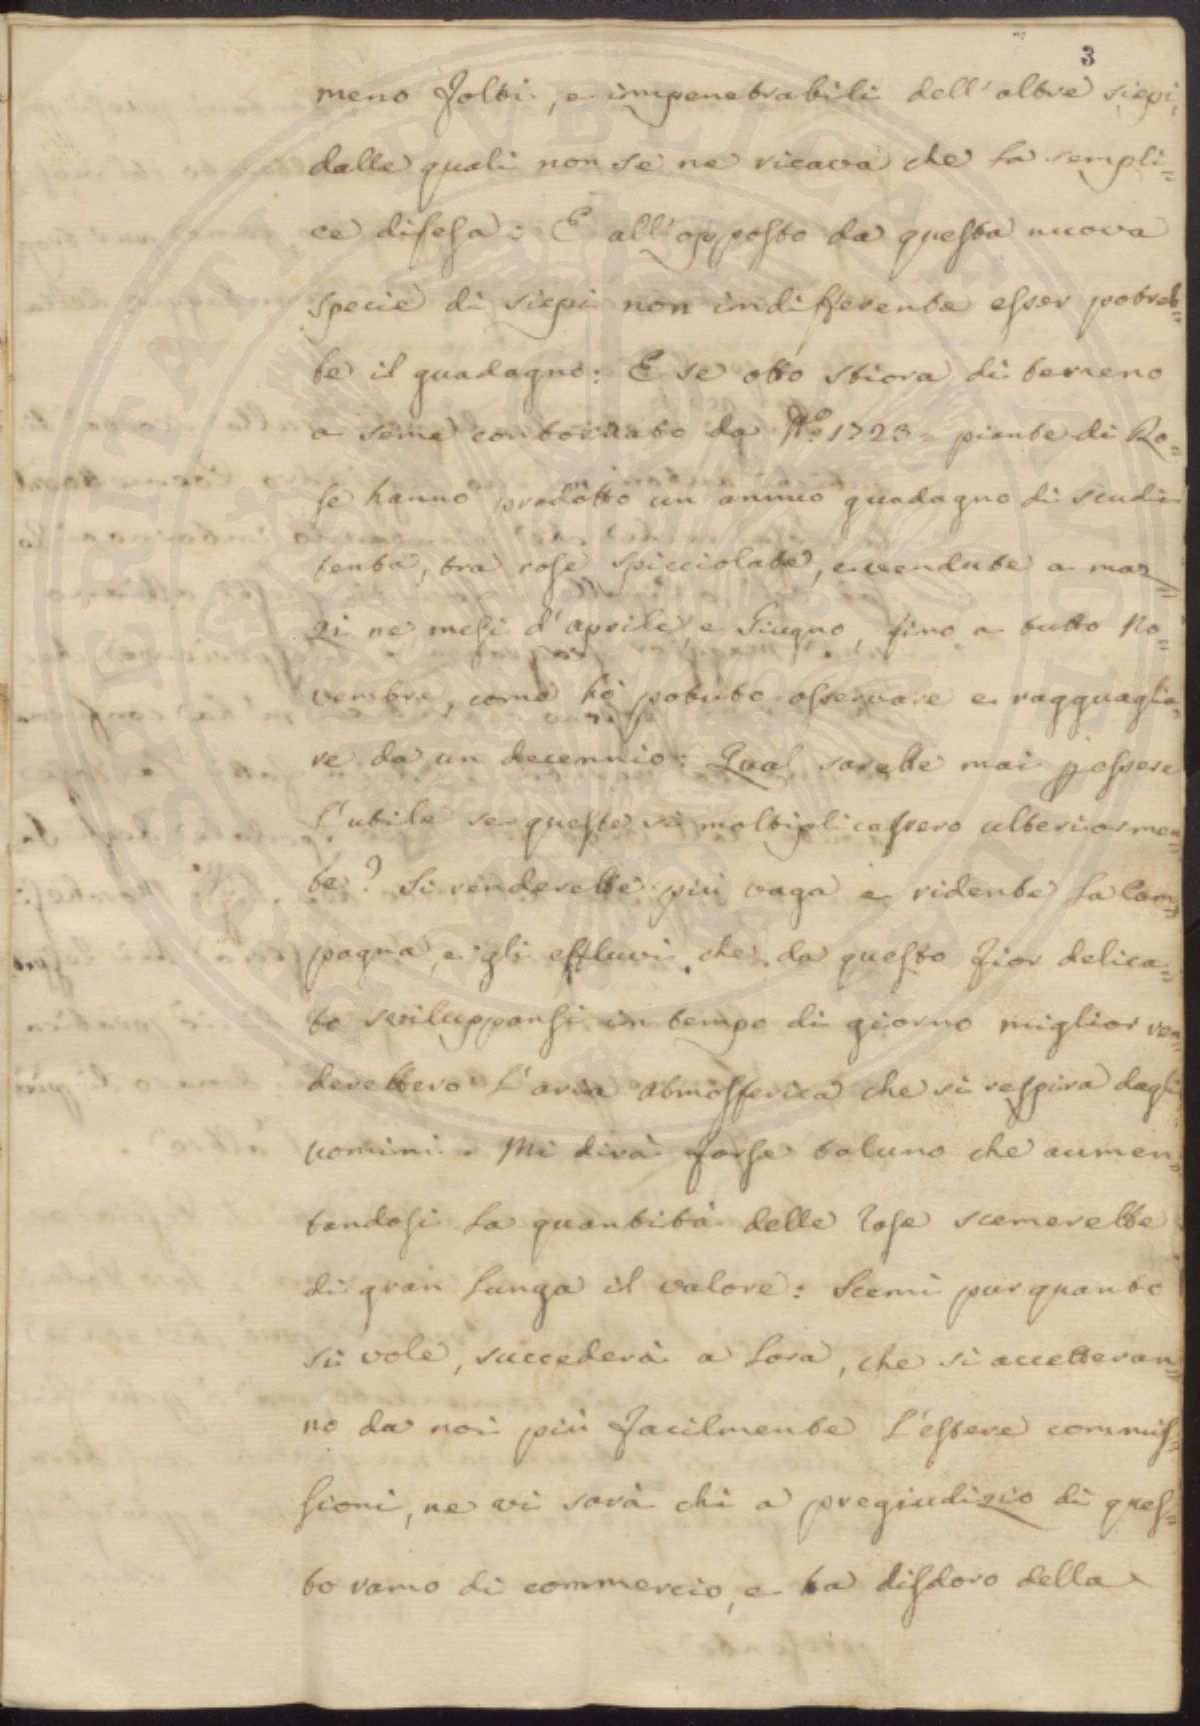 3
meno folti, e impenetrabili dell'altre siepi,
dalle quali non se ne ricava che la sempli=
ce difesa: E all'opposto da questa nuova
specie di siepi non indifferente esser potreb=
be il guadagno: E se otto stiora di terreno
a seme contornato da No. 1723 = piante di Ro=
se hanno prodotto un annuo guadagno di scudi
tenta, tra rose spicciolate, e vendute a maz=
zi ne mesi d'aprile, e Giugno, fino a tutto No=
vembre, come hò potuto osservare e ragguaglia=
re da un decennio: Qual sarebbe mai p essere
l'utile se queste si moltiplicassero ulteriormen=
te? Si renderebbe più vaga e ridente la Cam=
pagna, e gli effluvi che da questo fior delica=
to sviluppansi in tempo di giorno miglior ren=
derebbero l'aria atmosferica che si respira dagli
uomini. Mi dirà forse taluno che aumen=
tandosi la quantità delle rose scemerebbe
di gran lunga il valore: Scemi pur quanto
si vole, succederà a lora, che si accetteran=
no da noi più facilmente l'estere commis=
sioni, ne vi sarà chi a pregiudizio di ques=
to ramo di commercio, e a disdoro della